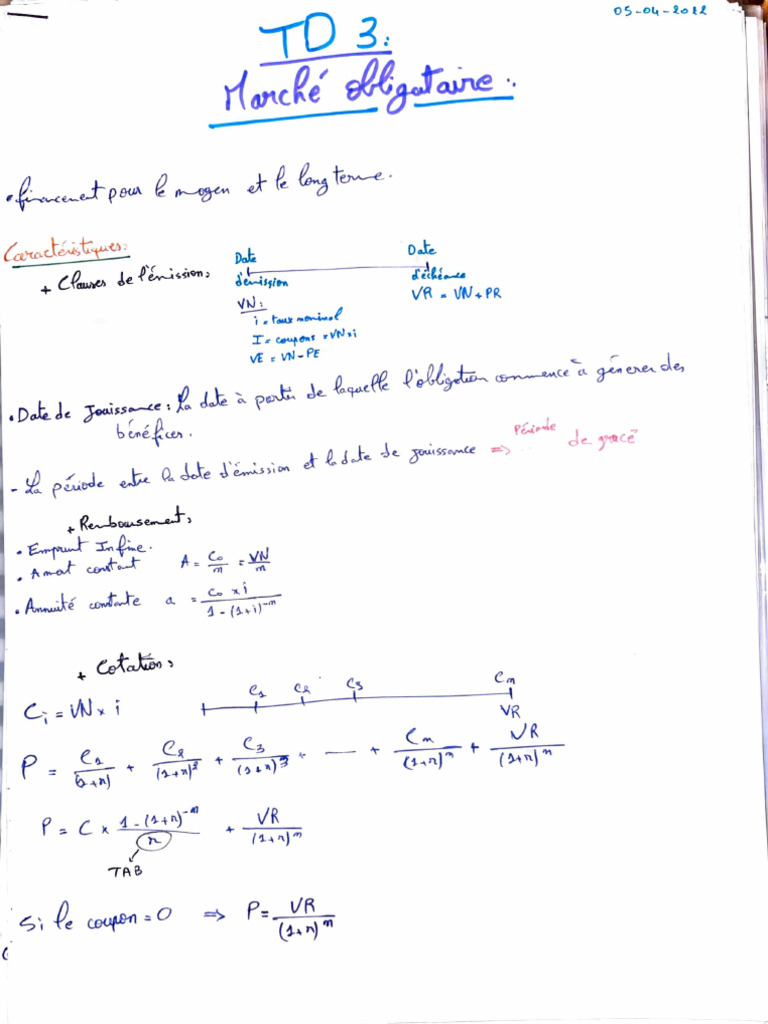 05-04-2022
TD 3:
Marché obligataire:
• financement pour le moyen et le long terme.
Caractéristiques:
+ Clauses de l'émission:
Date d'émission
Date d'échéance
VR = VN + PR
VN:
i = taux nominal
I = coupons = VN x i
VE = VN - PE
• Date de Jouissance: la date à partir de laquelle l'obligation commence à génerer des
bénéfices.
- La période entre la date d'émission et la date de jouissance => Période de grace
+ Remboursement:
• Emprunt Infine.
• Amot constant A = C₀/n = VN/n
• Annuité constante a = (C₀ x i)/(1-(1+i)⁻ⁿ)
+ Cotation:
C₁ C₂ C₃ Cₙ
VR
Cᵢ = VN x i
P = C₁/(1+r) + C₂/(1+r)² + C₃/(1+r)³ + — + Cₙ/(1+r)ⁿ + VR/(1+r)ⁿ
P = C x (1-(1+r)⁻ⁿ)/r + VR/(1+r)ⁿ
TAB
Si le coupon = 0 => P = VR/(1+r)ⁿ